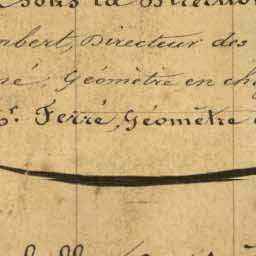 sous la Direction
mbert, Directeur des
né, Géomètre en che
r. Ferré, Géomètre